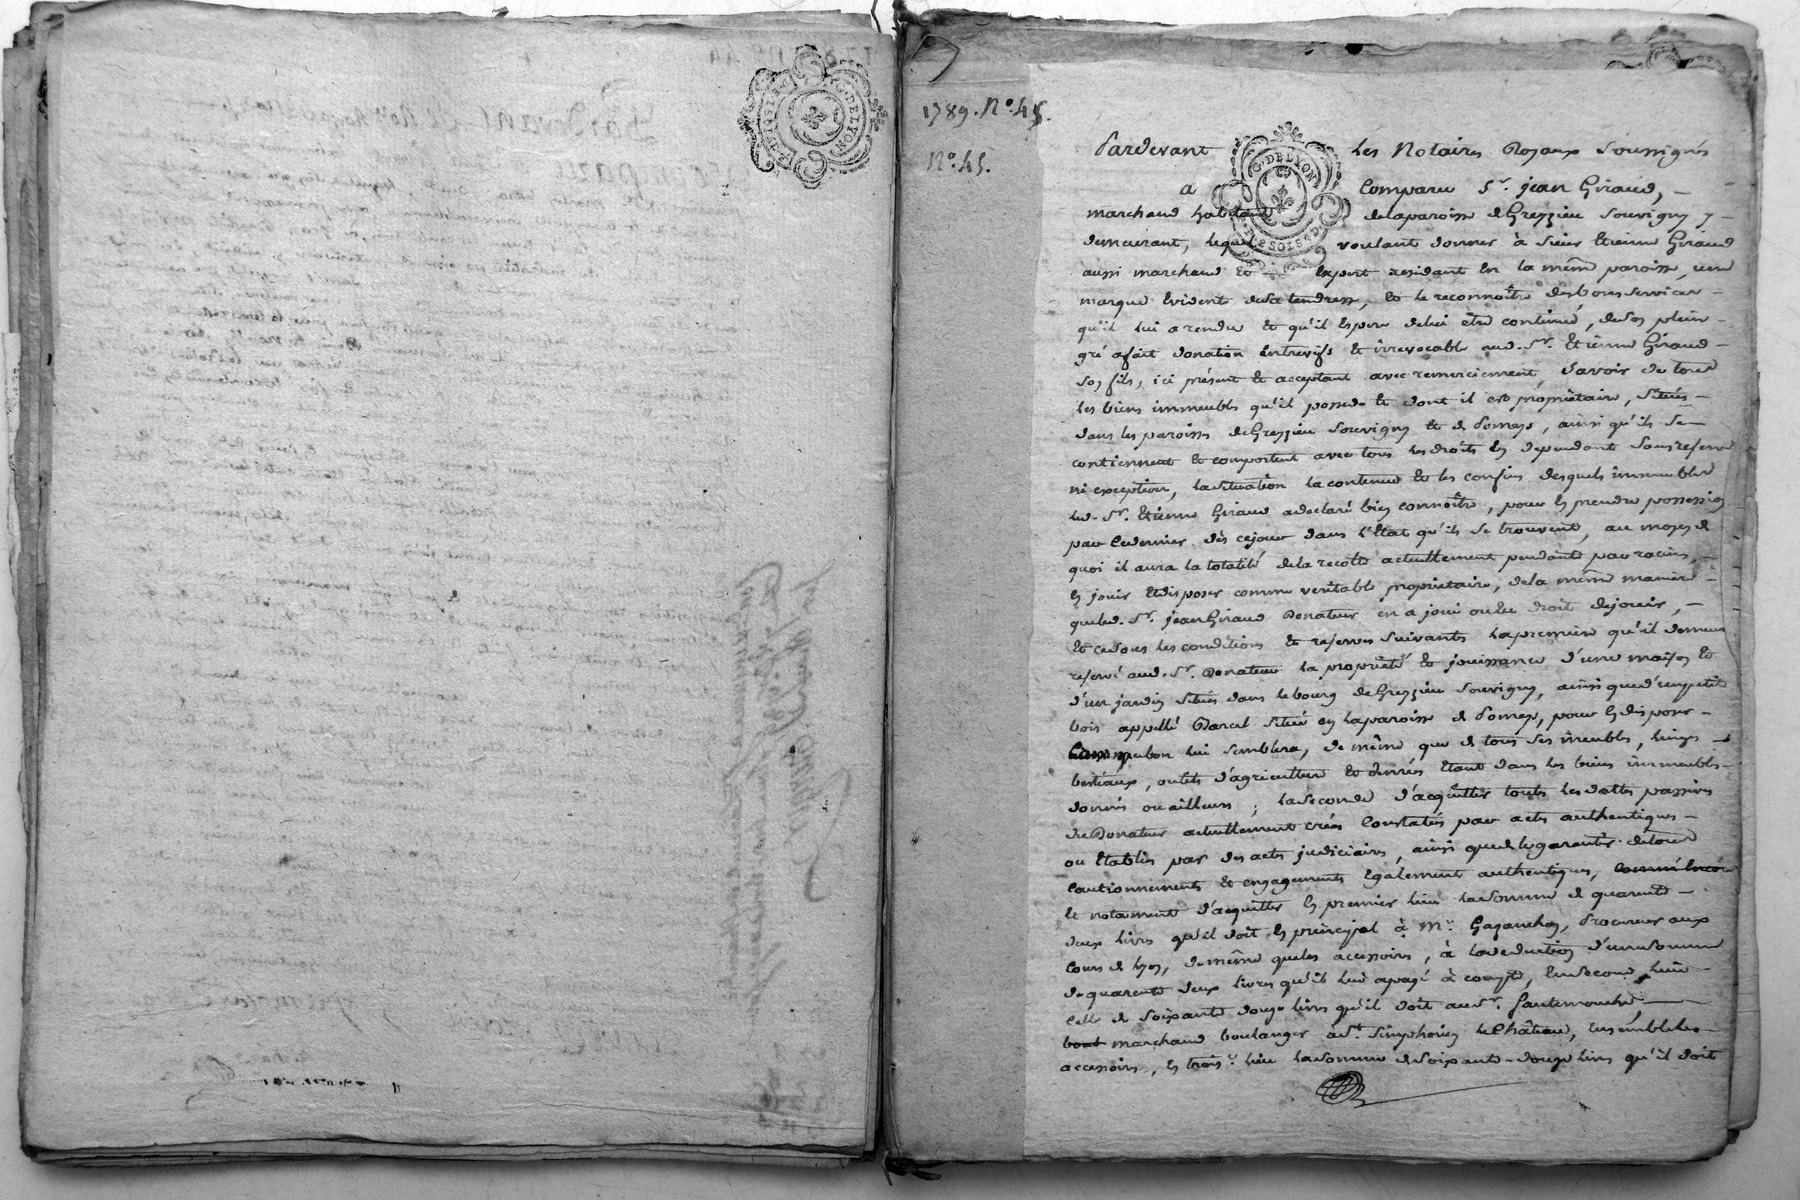 G. DE LYON
1789. No. 45.
No. 45.
Pardevant les Notaires Royaux soussignés
a comparu Sr. jean Giraud,
marchand habitant de la paroisse de Grezzieu Souvigny y
demeurant, lequel voulant donner à sieur Etienne Giraud
aussi marchand et expert residant en la même paroisse, une
marque evidente de sa tendresse, et le reconnoître des bons services
qu'il lui a rendu et qu'il espere de lui être continué, de son plein
gré a fait donation entrevifs et irrevocable aud. Sr. Etienne Giraud
son fils, ici présent et acceptant avec remerciement, savoir de tous
les biens immeubles qu'il possede et dont il est propriétaire, situés
dans les paroisses de Grezzieu Souvigny et de Pomeys, ainsi qu'ils se
contiennent et comportent avec tous les droits en dependant sans reserve
ni exception, la situation la contenue et les confins desquels immeubles
led. Sr. Etienne Giraud a declaré bien connoître, pour en prendre possession
par ce dernier dès ce jour dans l'état qu'ils se trouvent, au moyen de
quoi il aura la totalité de la recolte actuellement pendante par racines,
en jouir et disposer comme veritable propriétaire, de la même maniere
que led. Sr. jean Giraud Donateur en a joui ou eu droit de jouir,
et ce sous les conditions et reserves suivantes la premiere qu'il demeure
reservé aud. Sr. Donateur la propriété et jouissance d'une maison et
d'un jardin situés dans le bourg de Grezzieu Souvigny, ainsi que d'un petit
bois appellé Darcel situé en la paroisse de Pomeys, pour en disposer
que bon lui semblera, de même que de tous ses meubles, linges
bestiaux, outils d'agriculture et denrées étant dans les biens immeubles
donnés ou ailleurs ; la seconde d'acquitter toutes les dettes passives
du Donateur actuellement créés constatées par actes authentiques
ou etablies par des actes judiciaires, ainsi que de le garantir de tous
cautionnements et engagements également authentiques,
et notament d'acquitter en premier lieu la somme de quarante
deux livres qu'il doit en principal à Mr. Procureur aux
cours de Lyon, de même que les accessoires, à la deduction d'une somme
de quarante deux livres qu'il lui a payé à compte, en second lieu
celle de soixante douze livres qu'il doit au Sr. Gautemouche
marchand boulanger à St. Simphorien le Château, ensemble les
accessoires, en trois.e lieu la somme de soixante-douze livres qu'il doit